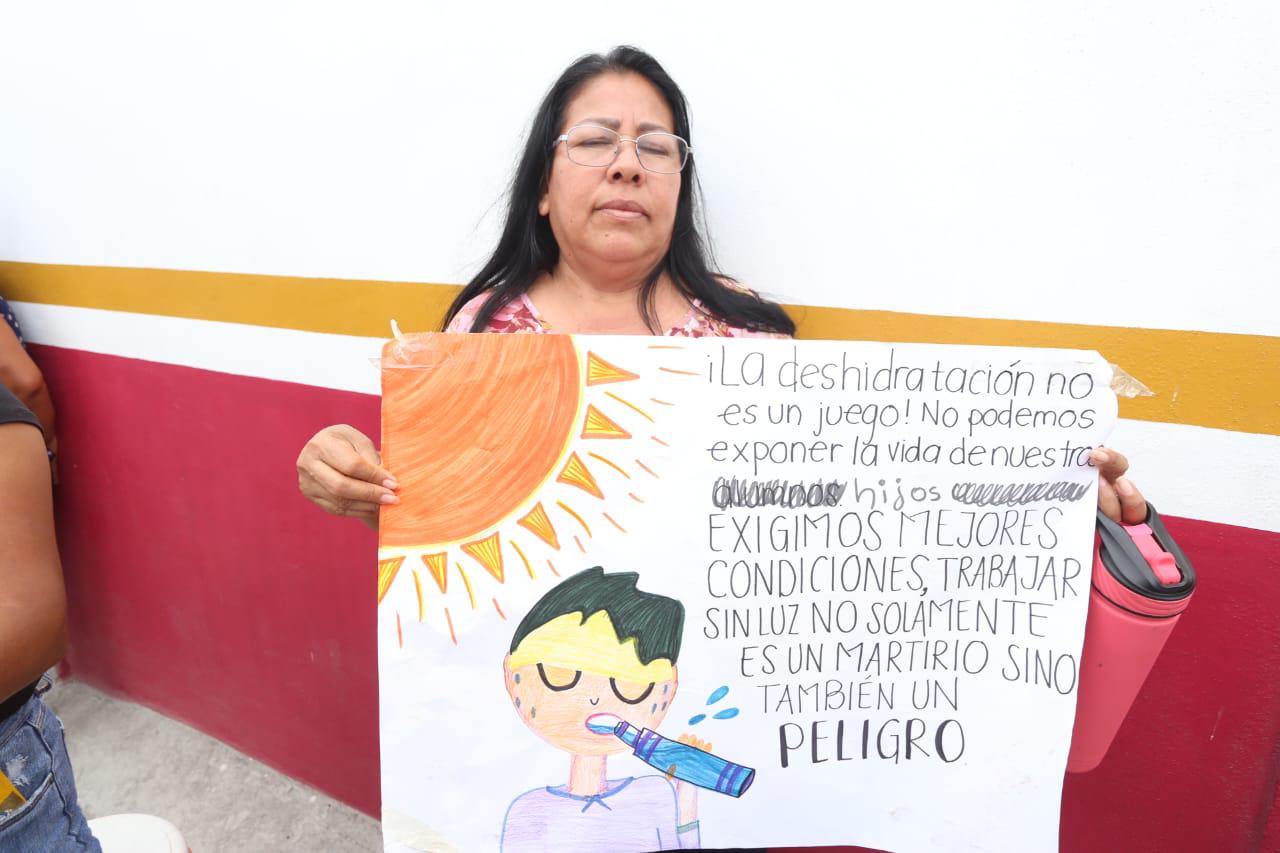 ¡La deshidratación no
es un juego! No podemos
exponer la vida de nuestra
alumnos hijos
EXIGIMOS MEJORES
CONDICIONES, TRABAJAR
SIN LUZ NO SOLAMENTE
ES UN MARTIRIO SINO
TAMBIÉN UN
PELIGRO